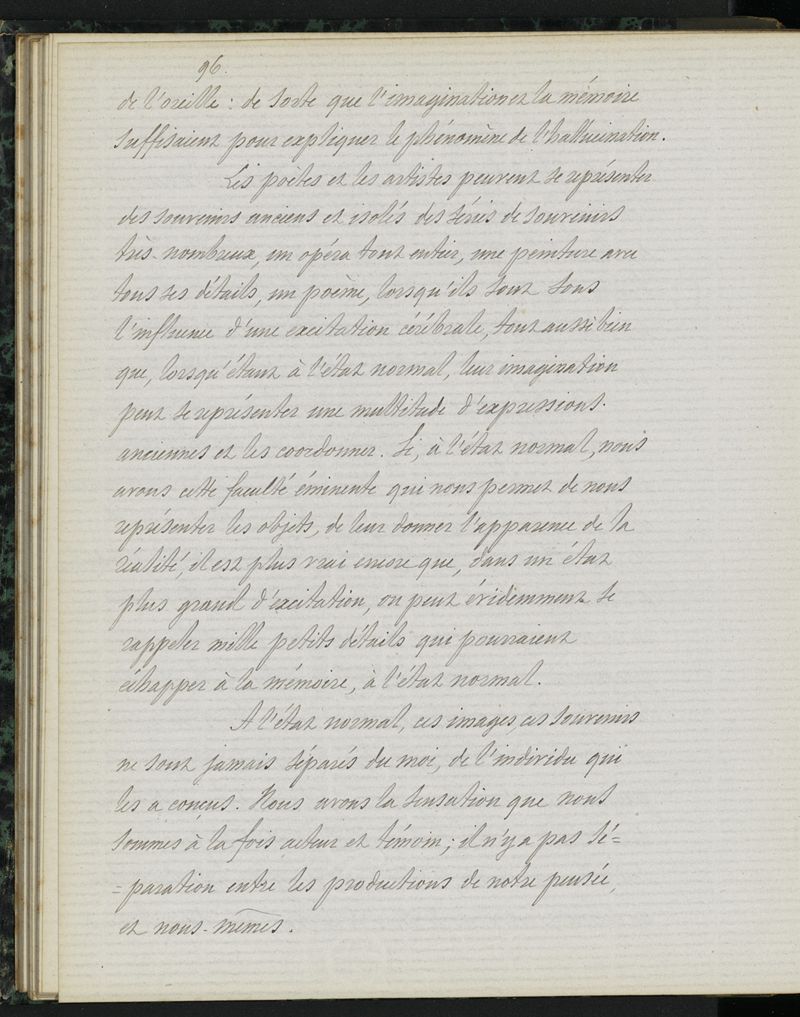 96.
de l'oreille : de sorte que l'imagination et la mémoire
suffisaient pour expliquer le phénomène de l'hallucination.
Les poètes et les artistes peuvent se représenter
des souvenirs anciens et isolés des séries de souvenirs
très nombreux, un opéra tout entier, une peinture avec
tous ses détails, un poème, lorsqu'ils sont sous
l'influence d'une excitation cérébrale, tout aussi bien
que, lorsqu'étant à l'état normal, leur imagination
peut se représenter une multitude d'expressions.
anciennes et les coordonner. Si, à l'état normal, nous
avons cette faculté éminente qui nous permet de nous
représenter les objets, de leur donner l'apparence de la
réalité, il est plus vrai encore que, dans un état
plus grand d'excitation, on peut évidemment se
rappeler mille petits détails qui pourraient
échapper à la mémoire, à l'état normal.
A l'état normal, ces images, ces souvenirs
ne sont jamais séparés du moi, de l'individu qui
les a conçus. Nous avons la sensation que nous
sommes à la fois acteur et témoin ; il n'y a pas sé=
=paration entre les productions de notre pensée,
et nous-mêmes.